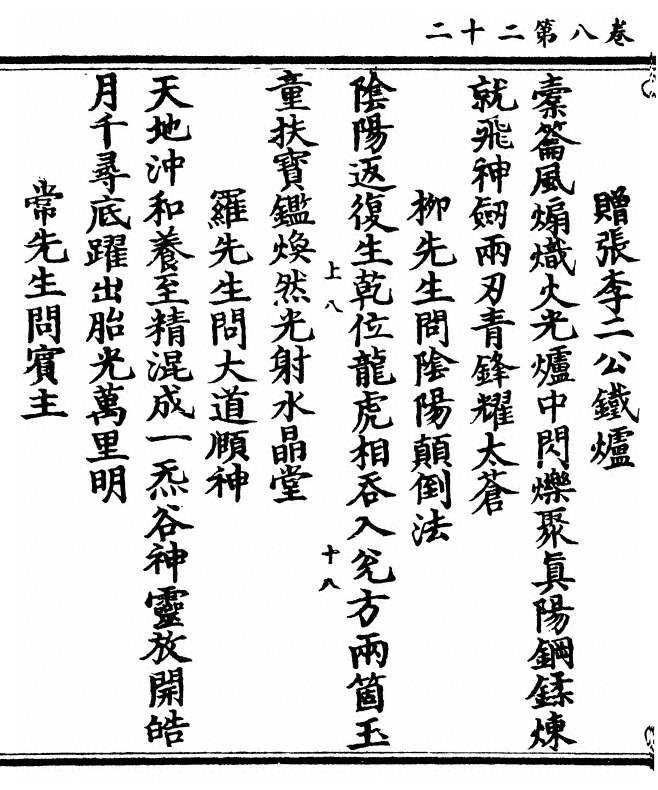 卷八第二十二
贈張李二公鐵爐
橐籥風煽熾火光爐中閃爍聚眞陽鋼鍒煉
就飛神劒兩刃青鋒耀太蒼
柳先生問陰陽顛倒法
陰陽返復生乾位龍虎相吞入兊方兩箇玉
上八
十八
童扶寶鑑煥然光射水晶堂
羅先生問大道頤神
天地沖和養至精混成一炁谷神靈放開皓
月千尋底躍出胎光萬里明
常先生問賓主